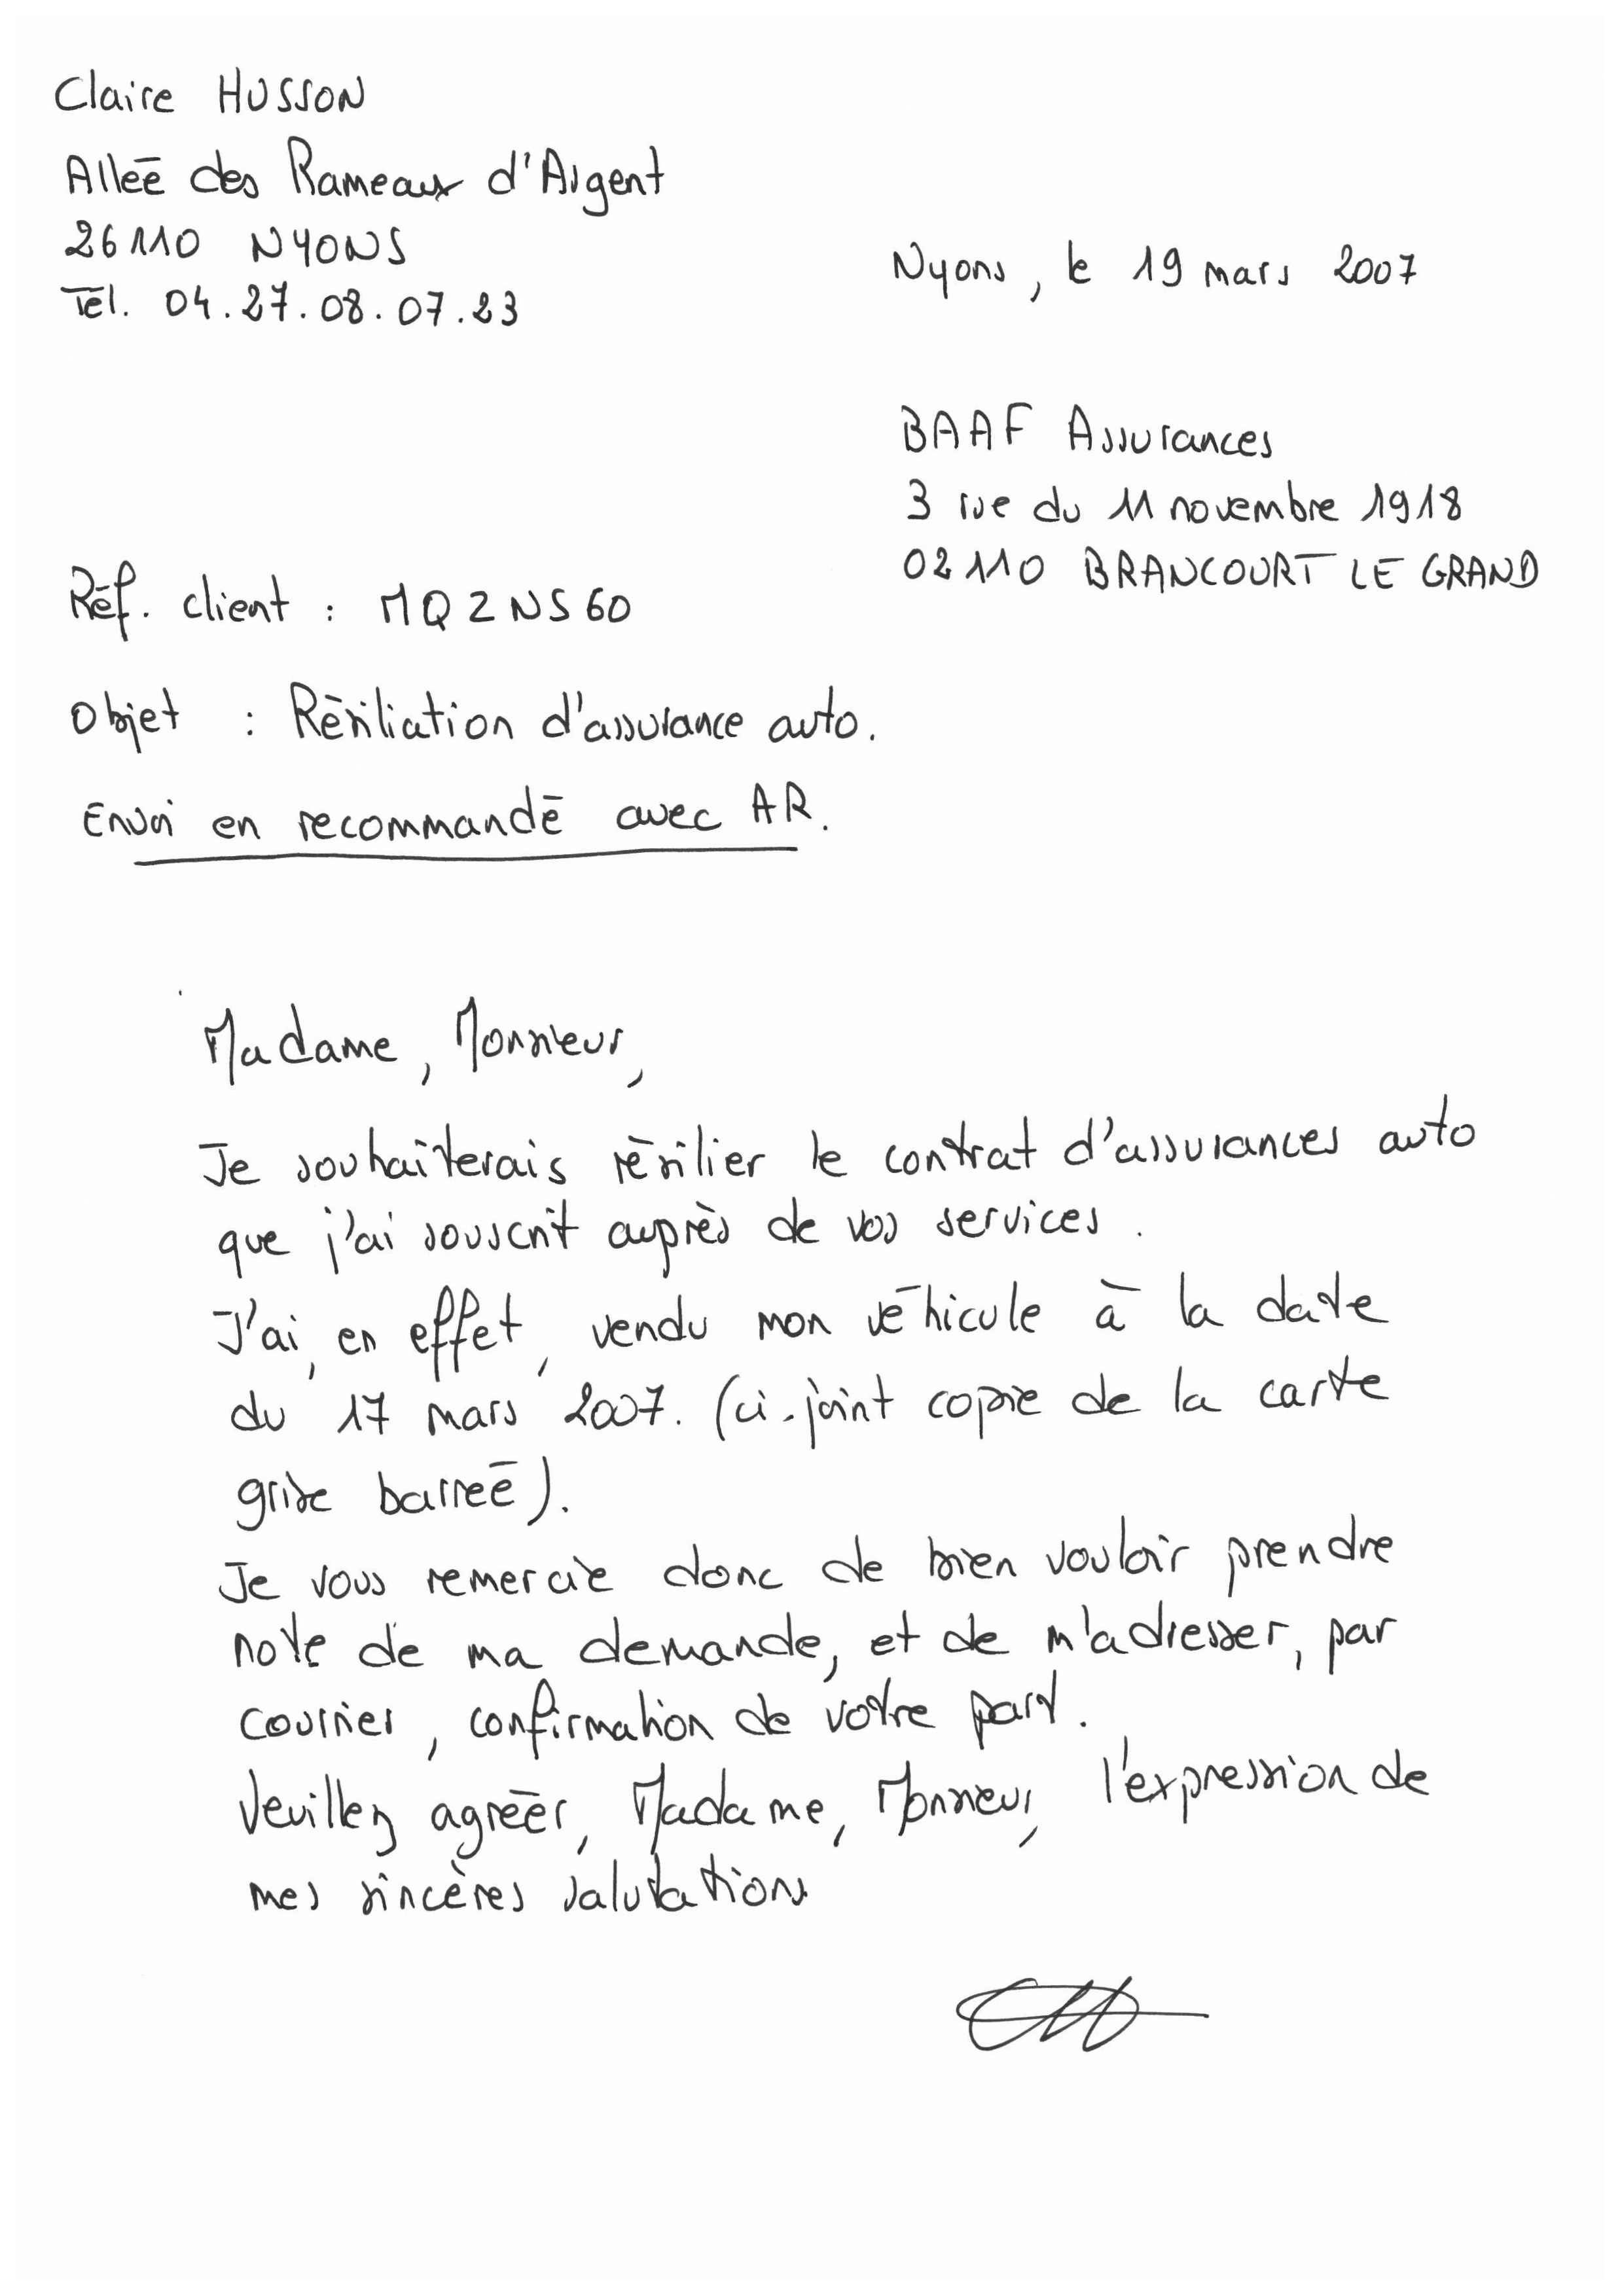 Claire HUSSON
Allée des Rameaux d'Argent
26110 NYONS
Tél. 04.27.08.07.23
Nyons, le 19 mars 2007
BAAF Assurances
3 rue du 11 novembre 1918
02110 BRANCOURT LE GRAND
Réf. client : MQZNS60
Objet : Résiliation d'assurance auto.
Envoi en recommandé avec AR.
Madame, Monsieur,
Je souhaiterais résilier le contrat d'assurances auto
que j'ai souscrit auprès de vos services.
J'ai, en effet, vendu mon véhicule à la date
du 17 mars 2007. (ci-joint copie de la carte
grise barrée).
Je vous remercie donc de bien vouloir prendre
note de ma demande, et de m'adresser, par
courrier, confirmation de votre part.
Veuillez agréer, Madame, Monsieur, l'expression de
mes sincères salutations